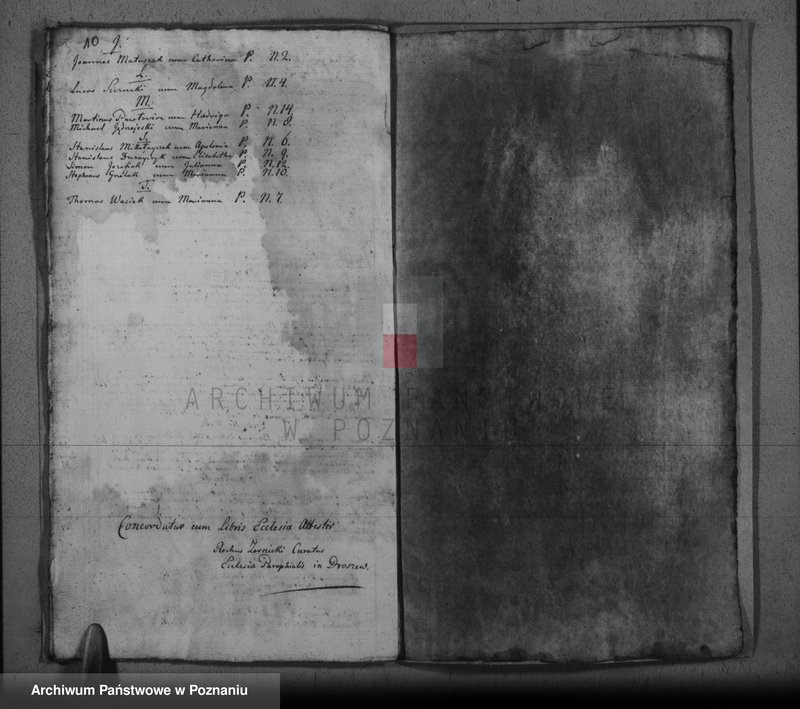 10 J.
Joannes Matuszak cum Catharina P. N. 2.
L.
Lucas cum Magdalena P. N. 4.
M.
Martinus cum Hedwiga P. N. 14.
Michael cum Marianna P. N. 8.
S.
Stanislaus cum Apolonia P. N. 6.
Stanislaus cum Elisabetha P. N. 9.
Simon Jozefiak cum Julianna P. N. 12.
Stephanus cum Marianna P. N. 10.
T.
Thomas Wasiak cum Marianna P. N. 7.
ARCHIWUM PAŃSTWOWE
W POZNANIU
Concordatur cum Libris Ecclesiæ Attestor
Rochus Curatus
Ecclesiæ Parochialis in Droszew.
Archiwum Państwowe w Poznaniu